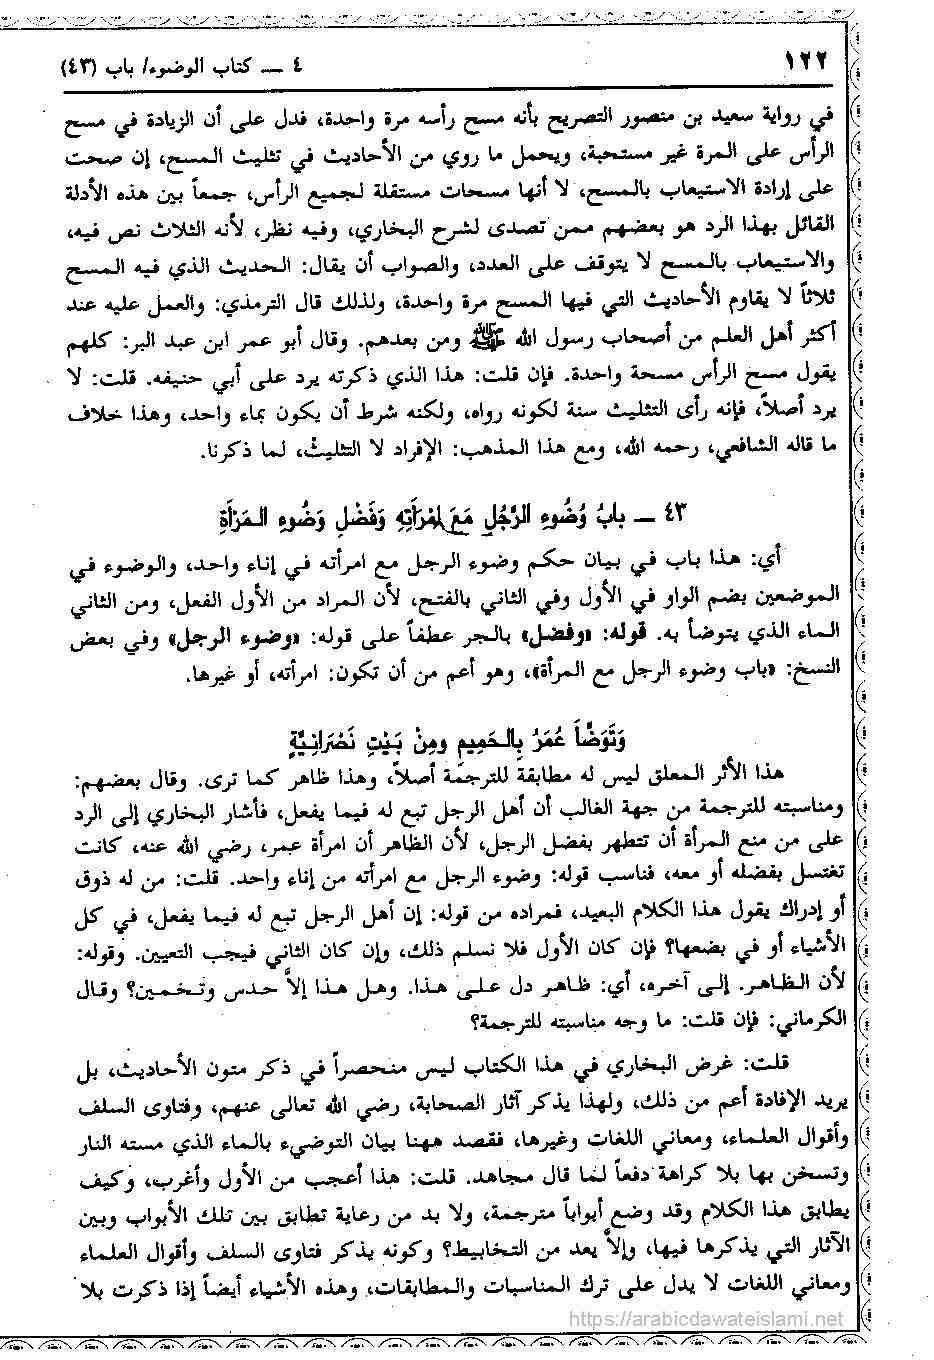 ١٢٢
٤ — كتاب الوضوء/ باب (٤٣)
في رواية سعيد بن منصور التصريح بأنه مسح رأسه مرة واحدة، فدل على أن الزيادة في مسح
الرأس على المرة غير مستحبة، ويحمل ما روي من الأحاديث في تثليث المسح، إن صحت
على إرادة الاستيعاب بالمسح، لا أنها مسحات مستقلة لجميع الرأس، جمعاً بين هذه الأدلة
القائل بهذا الرد هو بعضهم ممن تصدى لشرح البخاري، وفيه نظر، لأنه الثلاث نص فيه،
والاستيعاب بالمسح لا يتوقف على العدد، والصواب أن يقال: الحديث الذي فيه المسح
ثلاثاً لا يقاوم الأحاديث التي فيها المسح مرة واحدة، ولذلك قال الترمذي: والعمل عليه عند
أكثر أهل العلم من أصحاب رسول الله ﷺ ومن بعدهم. وقال أبو عمر ابن عبد البر: كلهم
يقول مسح الرأس مسحة واحدة. فإن قلت: هذا الذي ذكرته يرد على أبي حنيفه. قلت: لا
يرد أصلاً، فإنه رأى التثليث سنة لكونه رواه، ولكنه شرط أن يكون بماء واحد، وهذا خلاف
ما قاله الشافعي، رحمه الله، ومع هذا المذهب: الإفراد لا التثليث، لما ذكرنا.
٤٣ — بابُ وُضُوءِ الرَّجُلِ مَعَ امْرَأَتِهِ وَفَضْلِ وَضُوءِ المَرْأَةِ
أي: هذا باب في بيان حكم وضوء الرجل مع امرأته في إناء واحد، والوضوء في
الموضعين بضم الواو في الأول وفي الثاني بالفتح، لأن المراد من الأول الفعل، ومن الثاني
الماء الذي يتوضأ به. قوله: «وفضل» بالجر عطفاً على قوله: «وضوء الرجل» وفي بعض
النسخ: «باب وضوء الرجل مع المرأة»، وهو أعم من أن تكون: امرأته، أو غيرها.
وَتَوَضَّأَ عُمَرُ بِالحَمِيمِ ومِنْ بَيْتِ نَصْرَانِيَّةٍ
هذا الأثر المعلق ليس له مطابقة للترجمة أصلاً، وهذا ظاهر كما ترى. وقال بعضهم:
ومناسبته للترجمة من جهة الغالب أن أهل الرجل تبع له فيما يفعل، فأشار البخاري إلى الرد
على من منع المرأة أن تتطهر بفضل الرجل، لأن الظاهر أن امرأة عمر، رضي الله عنه، كانت
تغتسل بفضله أو معه، فناسب قوله: وضوء الرجل مع امرأته من إناء واحد. قلت: من له ذوق
أو إدراك يقول هذا الكلام البعيد، فمراده من قوله: إن أهل الرجل تبع له فيما يفعل، في كل
الأشياء أو في بضعها؟ فإن كان الأول فلا نسلم ذلك، وإن كان الثاني فيجب التعيين. وقوله:
لأن الظاهر. إلى آخره، أي: ظاهر دل على هذا. وهل هذا إلاَّ حدس وتخمين؟ وقال
الكرماني: فإن قلت: ما وجه مناسبته للترجمة؟
قلت: غرض البخاري في هذا الكتاب ليس منحصراً في ذكر متون الأحاديث، بل
يريد الإفادة أعم من ذلك، ولهذا يذكر آثار الصحابة، رضي الله تعالى عنهم، وفتاوى السلف
وأقوال العلماء، ومعاني اللغات وغيرها، فقصد ههنا بيان التوضيء بالماء الذي مسته النار
وتسخن بها بلا كراهة دفعاً لما قال مجاهد. قلت: هذا أعجب من الأول وأغرب، وكيف
يطابق هذا الكلام وقد وضع أبواباً مترجمة، ولا بد من رعاية تطابق بين تلك الأبواب وبين
الآثار التي يذكرها فيها، وإلاَّ يعد من التخابيط؟ وكونه يذكر فتاوى السلف وأقوال العلماء
ومعاني اللغات لا يدل على ترك المناسبات والمطابقات، وهذه الأشياء أيضاً إذا ذكرت بلا
https://arabicdawateislami.net